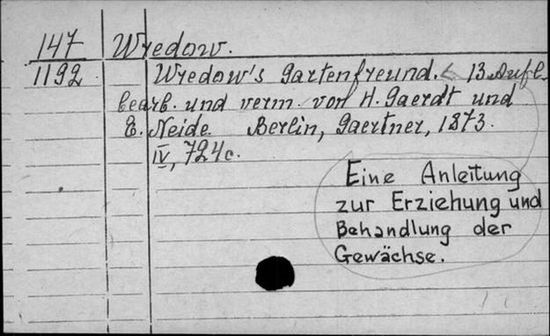 147 Wredow.
1192 Wredow's Gartenfreund. 13 Aufl.
bearb. und verm. von H. Gaerdt und
E. Neide. Berlin, Gaertner, 1873.
IV, 724c.
Eine Anleitung
zur Erziehung und
Behandlung der
Gewächse.